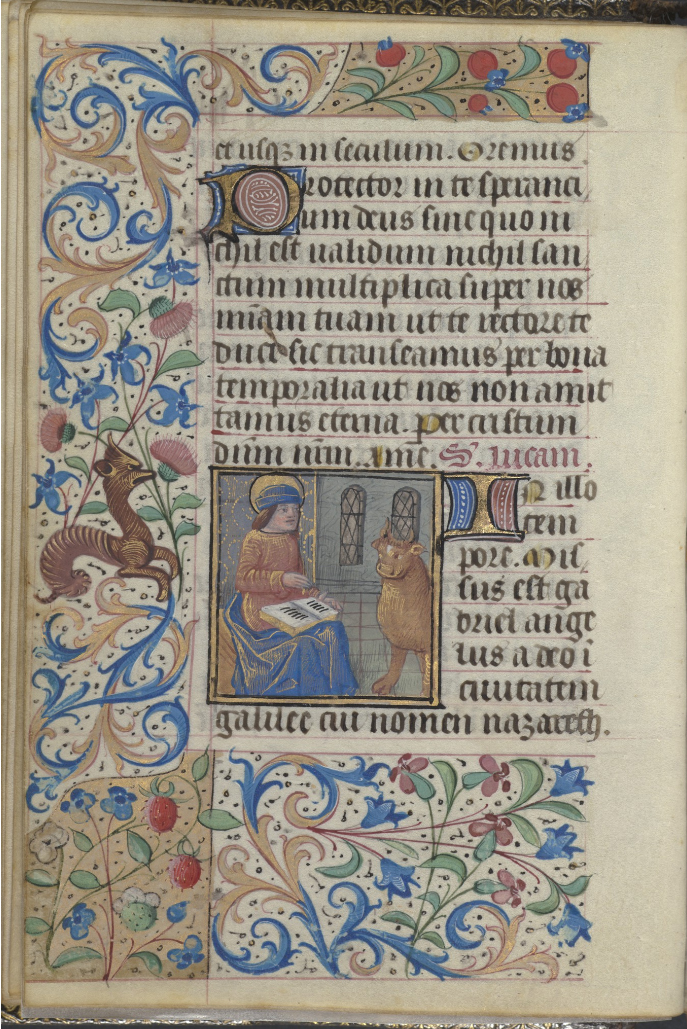 et usqz in seculum. Oremus
Protector in te speranci
um deus sine quo ni
chil est ualidum nichil san
ctum multiplica super nos
miam tuam ut te rectore te
duce sic transeamus per bona
temporalia ut nos non amit
tamus eterna. per cristum
dium nrm. Ame. S. lucam.
In illo
tem
pore. Mis
sus est ga
briel ange
lus a deo i
ciuitatem
galilee cui nomen nazareth.